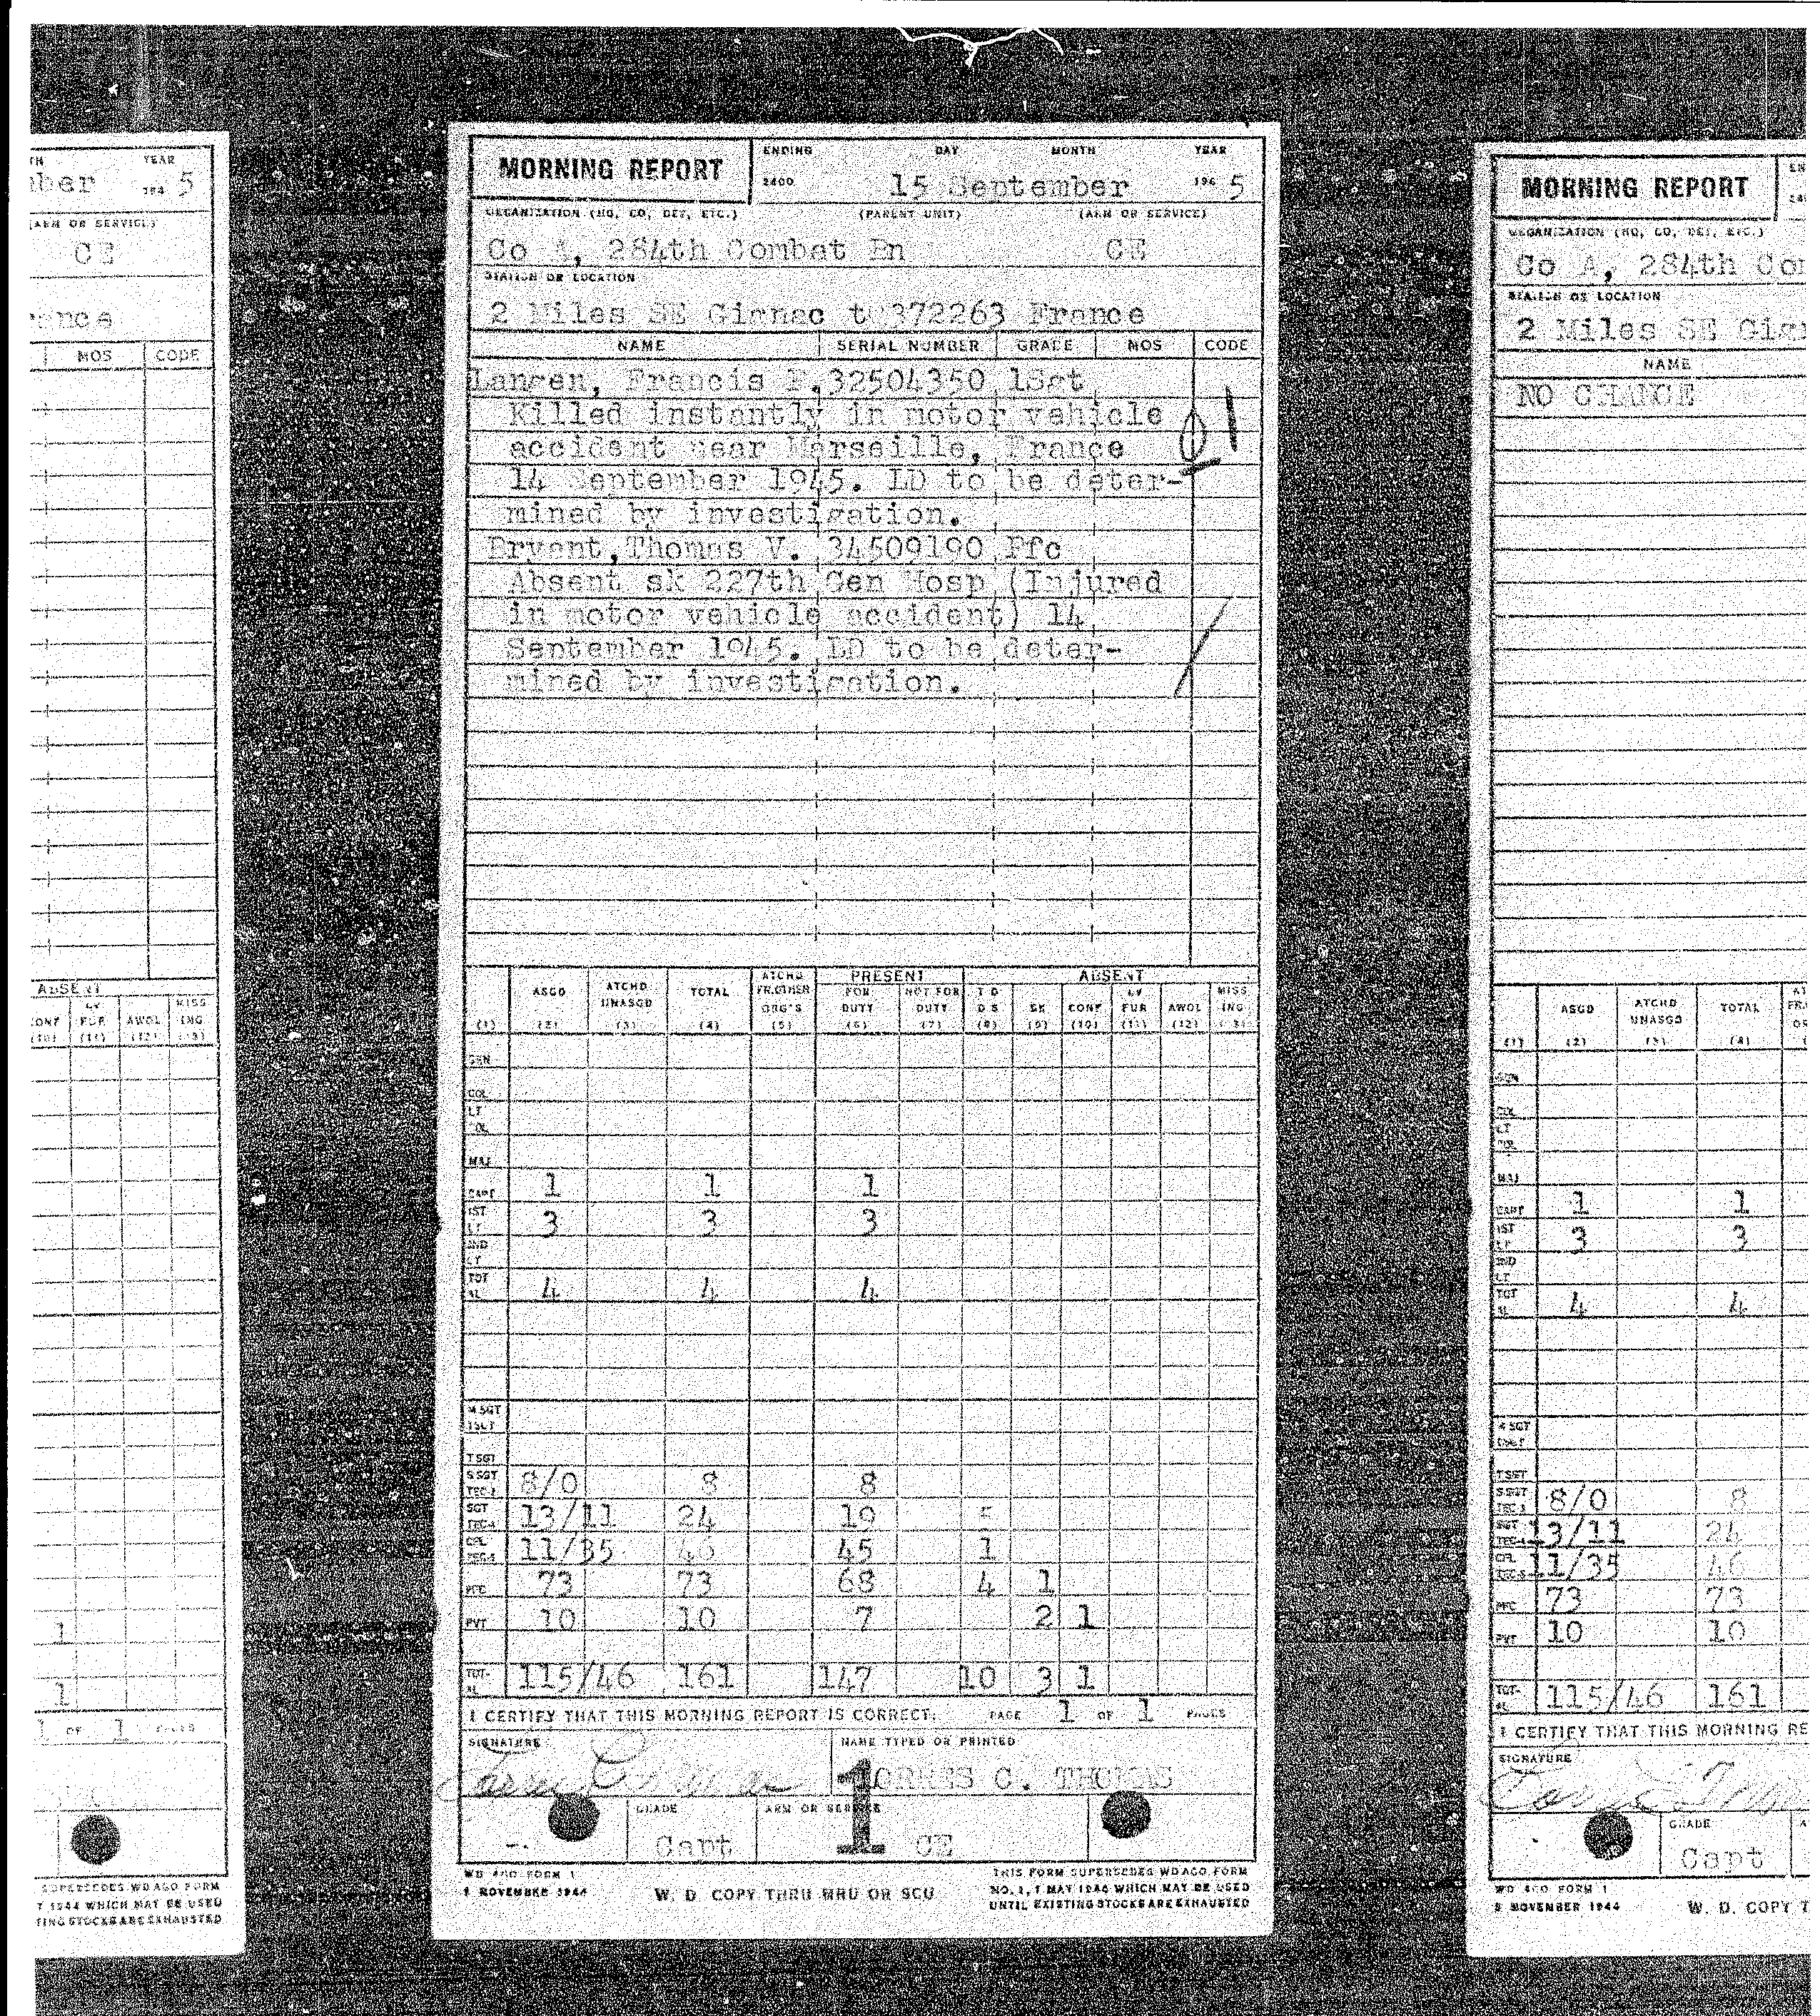 YEAR
194 5
(ARM OR SERVICE)
CE
MOS CODE
ABSENT
CONF LV FUR AWOL MISS ING
(10) (11) (12)
1
1
1 OF 1 PAGES
SUPERSEDES WD AGO FORM
Y 1944 WHICH MAY BE USED
TING STOCKS ARE EXHAUSTED
MORNING REPORT
ENDING DAY MONTH YEAR
2400 15 September 194 5
ORGANIZATION (HQ, CO, DET, ETC.) (PARENT UNIT) (ARM OR SERVICE)
Co A, 284th Combat Bn CE
STATION OR LOCATION
2 Miles SE Gignac 372263 France
NAME SERIAL NUMBER GRADE MOS CODE
Francis 32504350 1Sgt
Killed instantly in motor vehicle
accident near Marseille, France
14 September 1945. LD to be deter-
mined by investigation.
Bryant, Thomas V. 34509190 Pfc
Absent sk 227th Gen Hosp (Injured
in motor vehicle accident) 14
September 1945. LD to be deter-
mined by investigation.
ATCHD PRESENT ABSENT
ASGD ATCHD UNASGD TOTAL FR.OTHER ORG'S FOR DUTY NOT FOR DUTY T D D S SK CONF LV FUR AWOL MISS ING
(1) (2) (3) (4) (5) (6) (7) (8) (9) (10) (11) (12)
GEN
COL
LT COL
MAJ
CAPT 1 1 1
1ST LT 3 3 3
2ND LT
TOT AL 4 4 4
M SGT 1SGT
T SGT
S SGT TEC-3 8/0 8 8
SGT TEC-4 13/11 24 19 5
CPL TEC-5 11/35 46 45 1
PFC 73 73 68 4 1
PVT 10 10 7 2 1
TOT-AL 115/46 161 147 10 3 1
I CERTIFY THAT THIS MORNING REPORT IS CORRECT. PAGE 1 OF 1 PAGES
SIGNATURE NAME TYPED OR PRINTED
C. THOMAS
1
GRADE ARM OR SERVICE
Capt CE
WD AGO FORM 1
1 NOVEMBER 1944
W. D. COPY THRU MRU OR SCU
THIS FORM SUPERSEDES WD AGO FORM
NO. 1, 1 MAY 1944 WHICH MAY BE USED
UNTIL EXISTING STOCKS ARE EXHAUSTED
MORNING REPORT
ORGANIZATION (HQ, CO, DET, ETC.)
Co A, 284th Com
STATION OR LOCATION
2 Miles SE Gign
NAME
NO CHANGE
ASGD ATCHD UNASGD TOTAL
(1) (2) (3) (4)
GEN
COL
LT COL
MAJ
CAPT 1 1
1ST LT 3 3
2ND LT
TOT AL 4 4
M SGT 1SGT
T SGT
S SGT TEC-3 8/0 8
SGT TEC-4 13/11 24
CPL TEC-5 11/35 46
PFC 73 73
PVT 10 10
TOT-AL 115/46 161
I CERTIFY THAT THIS MORNING RE
SIGNATURE
GRADE
Capt
WD AGO FORM 1
1 NOVEMBER 1944
W. D. COPY T